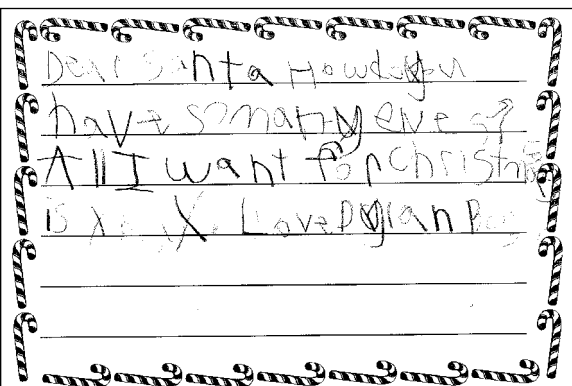 Dear Santa How do you
have so many elves?
All I want for Christmas
is X Love Dylan